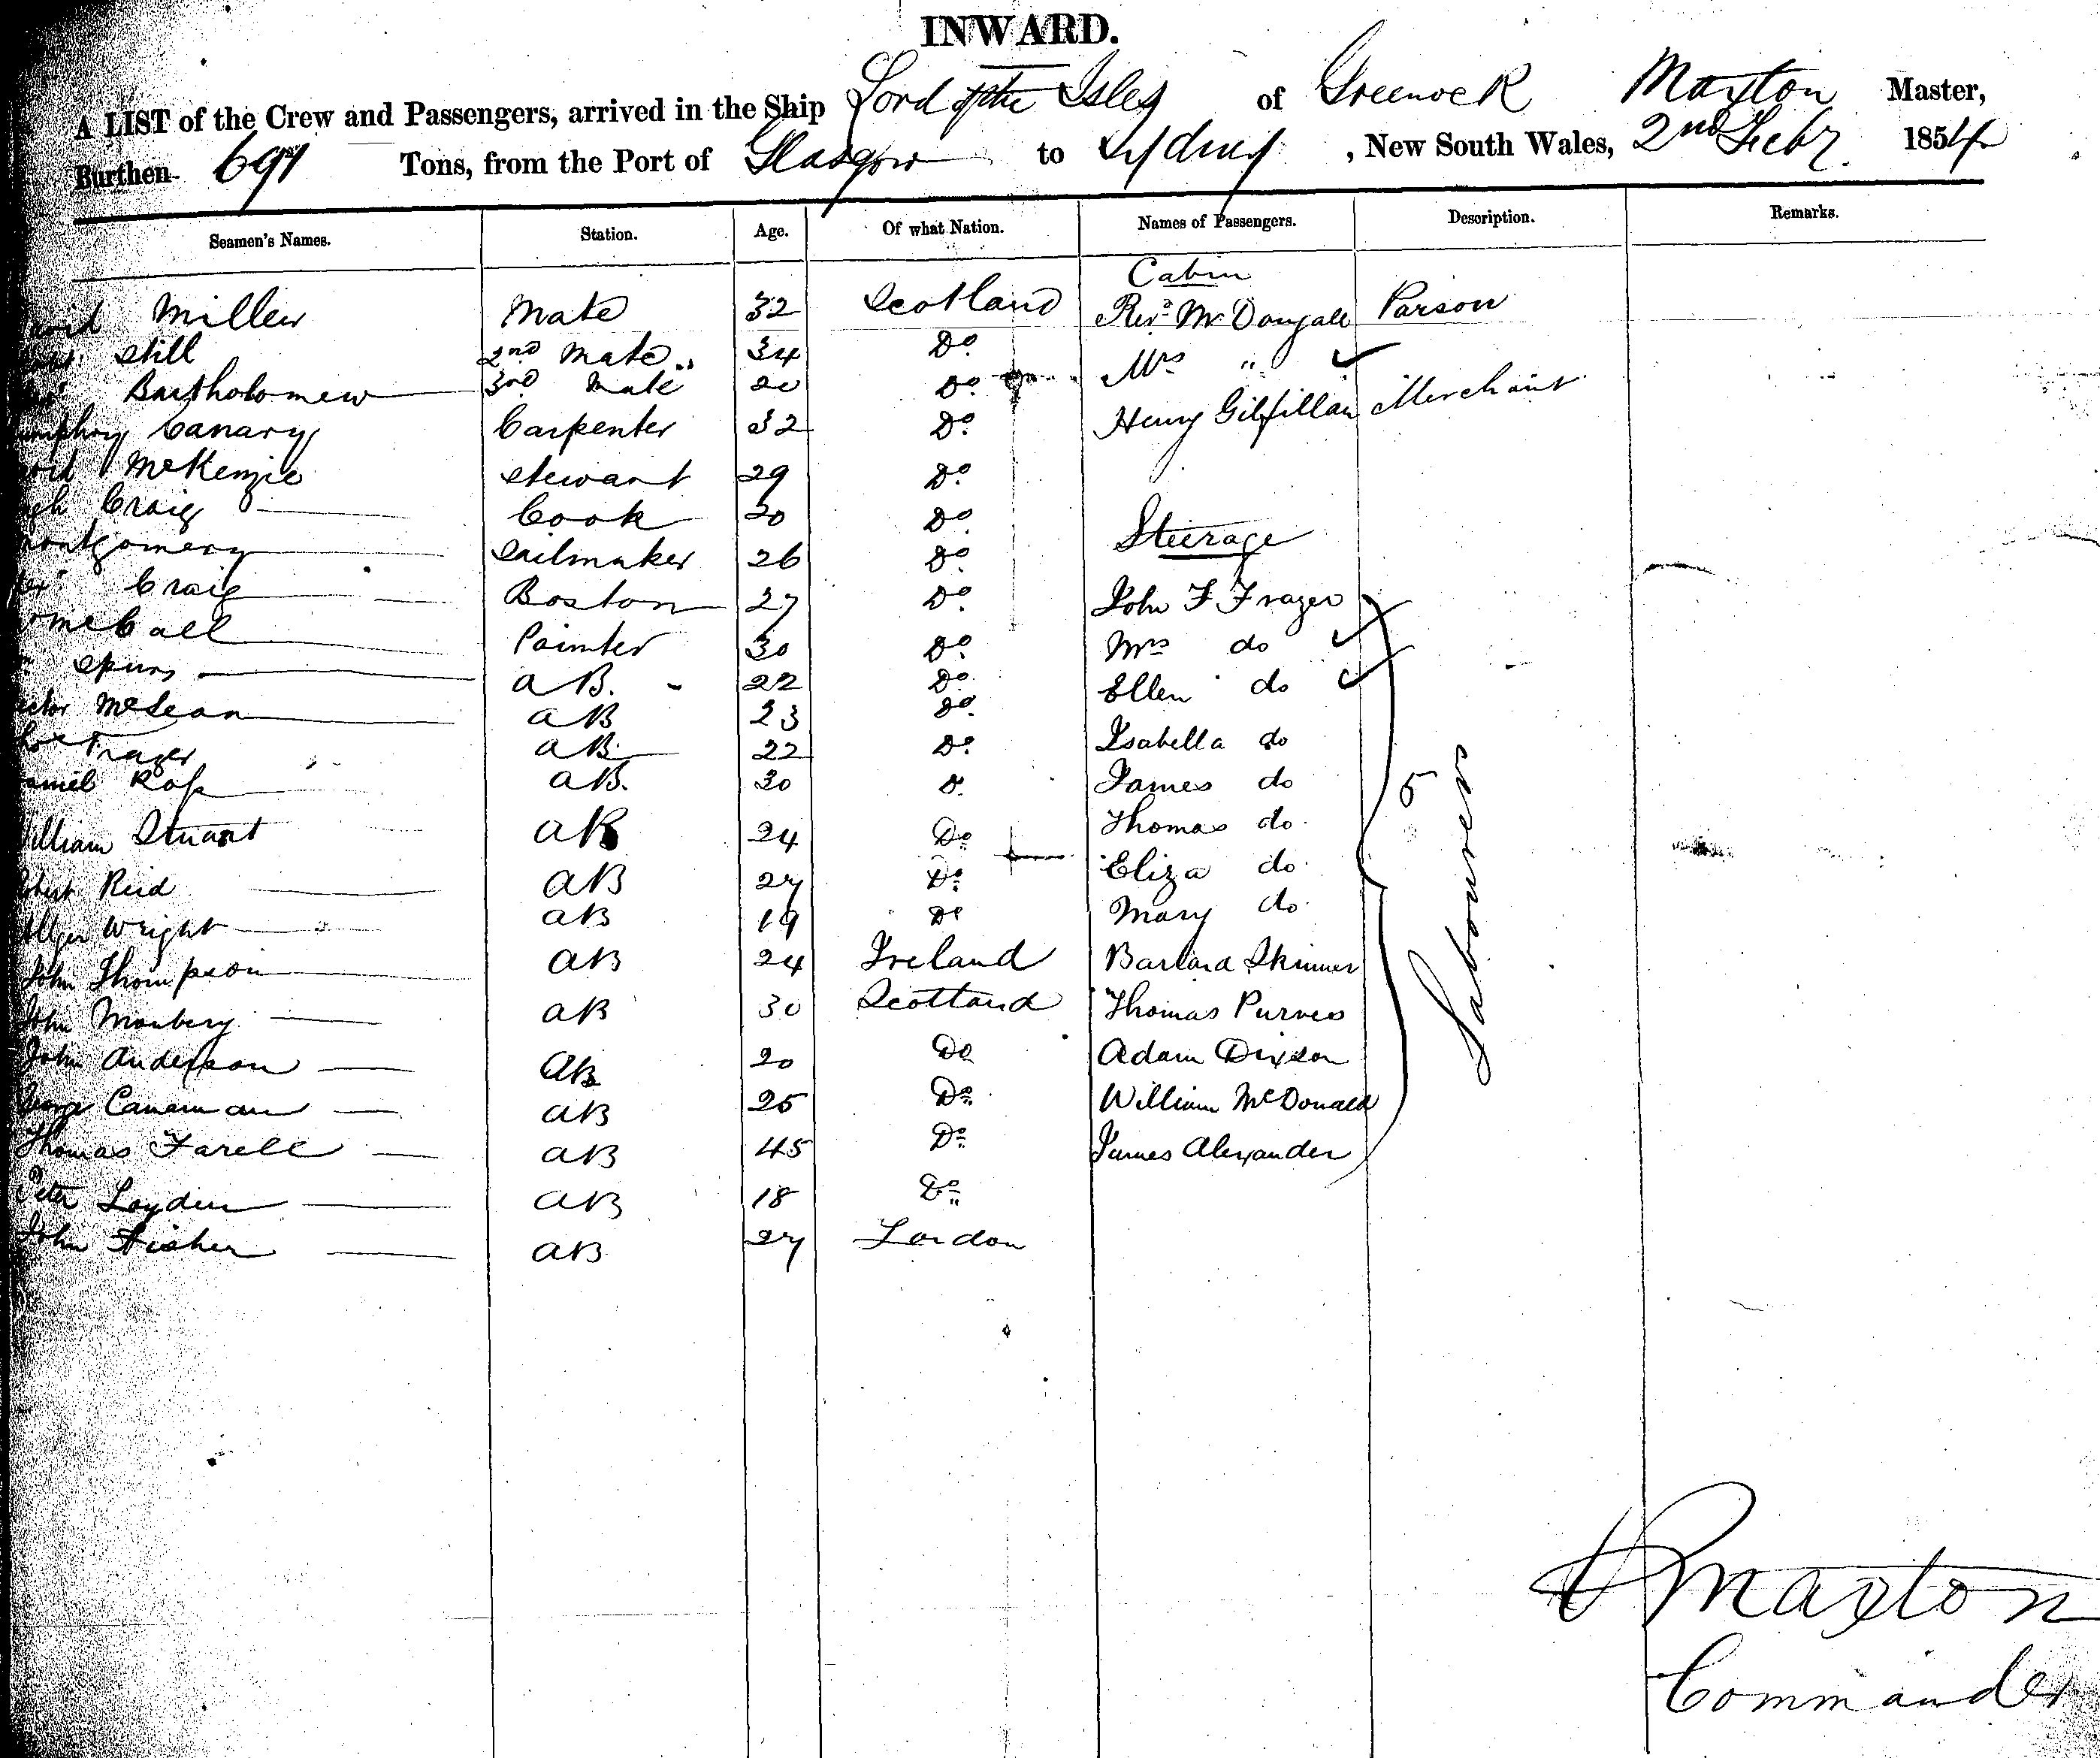 INWARD.
A LIST of the Crew and Passengers, arrived in the Ship Lord of the Isles of Greenock Maxton Master,
Burthen 691 Tons, from the Port of Glasgow to Sydney, New South Wales, 2nd Feby. 1854
Seamen's Names. Station. Age. Of what Nation. Names of Passengers. Description. Remarks.
Cabin
Miller Mate 32 Scotland Revd McDougall Parson
Still 2nd Mate 34 Do Mrs "
Bartholomew 3rd Mate 20 Do Henry Gilfillan Merchant
Canary Carpenter 32 Do
McKenzie Stewart 29 Do
Craig Cook 20 Do Steerage
Montgomery Sailmaker 26 Do
Craig Boston 27 Do John F Frazer
McCall Painter 30 Do Mrs do
Spurs AB. 22 Do Ellen do
McLean AB 23 Do Isabella do
Frazer AB 22 Do James do
Ross AB. 30 D. Thomas do
William Stuart AB 24 Do Eliza do
Robert Reid AB 27 Do Mary do
Wright AB 19 Do
John Thompson AB 24 Ireland Barbara Skinner
John Monbery AB 30 Scotland Thomas Purves
John Anderson AB 20 Do Adam Dixson
George Canaman AB 25 Do William McDonald
Thomas Farell AB 45 Do James Alexander
Peter Loyden AB 18 Do
John Fisher AB 27 London
5 Labourers
Maxton
Commander